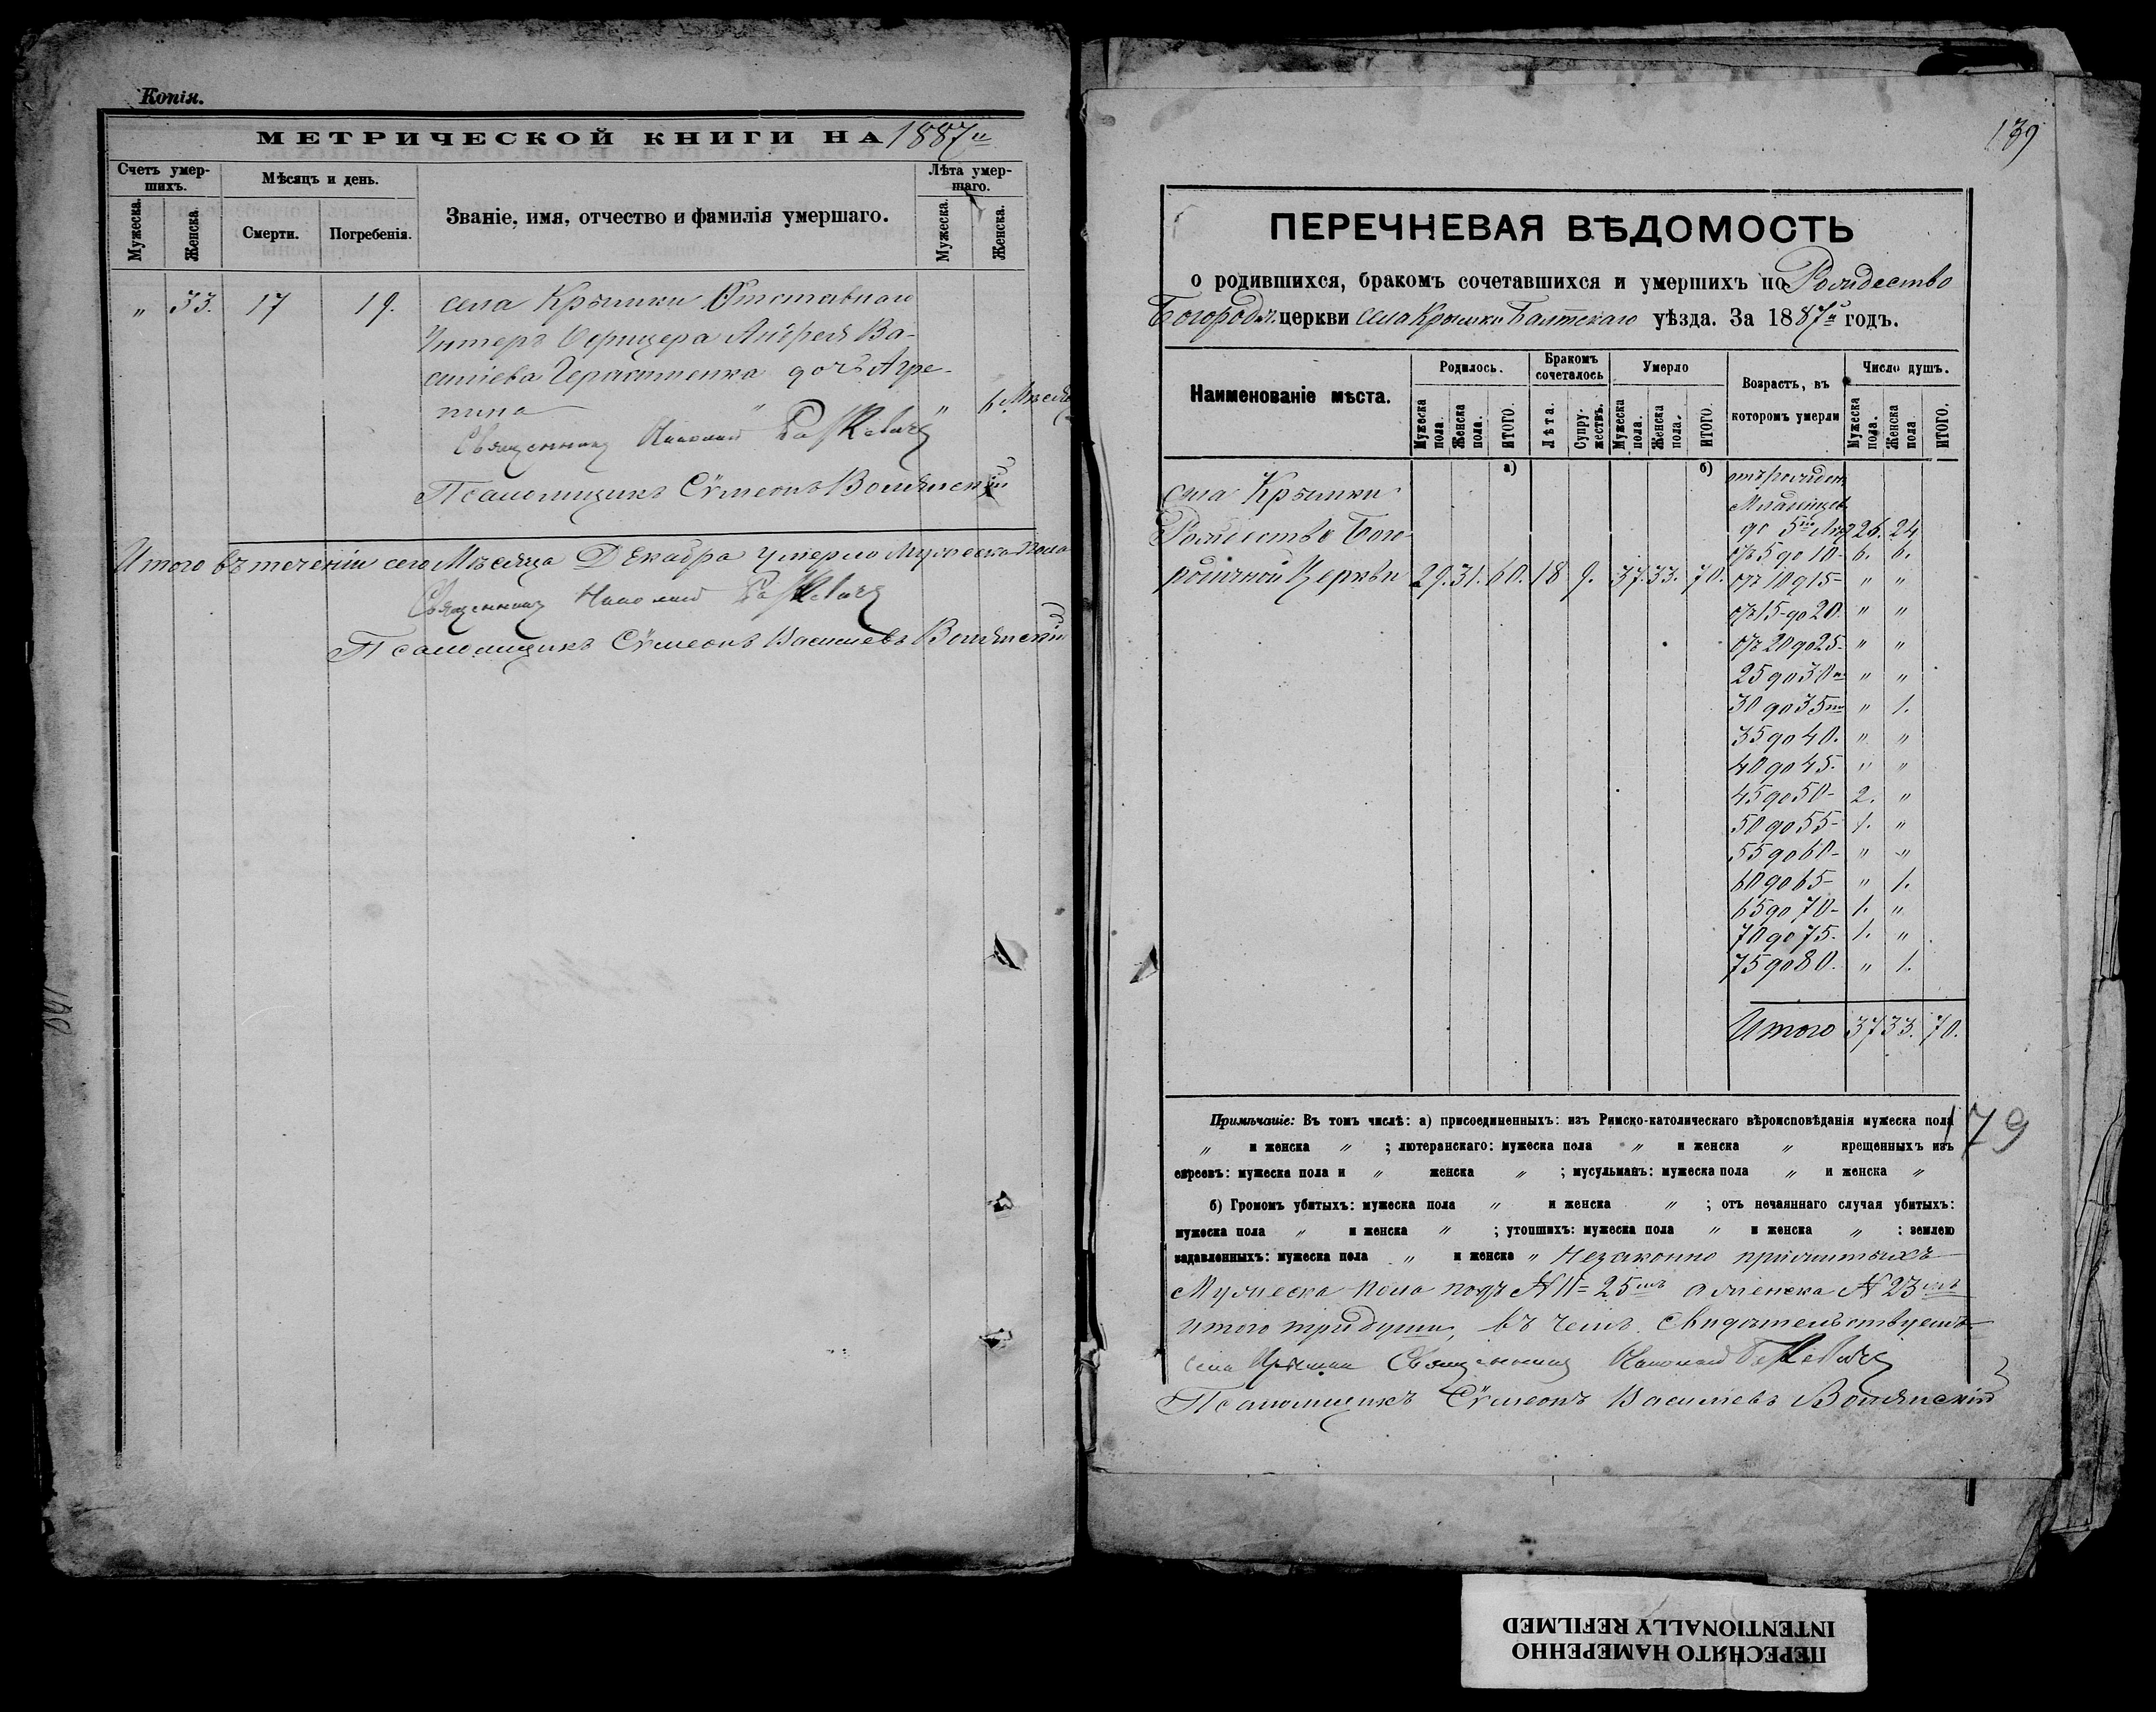 Копія.
МЕТРИЧЕСКОЙ КНИГИ НА 1887
Счетъ умер-
шихъ.
Мѣсяцъ и день.
Званіе, имя, отчество и фамилія умершаго.
Лѣта умер-
шаго.
Мужеска.
Женска.
Смерти.
Погребенія.
Мужеска.
Женска.
" 33. 17 19. села Крымки Отставнаго
Унтеръ Офицера Андрея Ва-
силіева Герасименка дочь Агре-
пина " 6 Мѣсяц
Священникъ Николай
Псаломщикъ Сѵмеонъ
Итого въ теченіи сего Мѣсяца Декабра умерло Мужеска пола
Священникъ Николай
Псаломщикъ Сѵмеонъ Василіевъ
139
ПЕРЕЧНЕВАЯ ВѢДОМОСТЬ
о родившихся, бракомъ сочетавшихся и умершихъ по Рождество
Богород. церкви села Крымки Балтскаго уѣзда. За 1887 годъ.
Наименованіе мѣста.
Родилось.
Бракомъ
сочеталось
Умерло
Возрастъ, въ
котором умерли
Число душъ.
Мужеска пола.
Женска пола.
ИТОГО.
Лѣта.
Супру-
жествъ.
Мужеска пола.
Женска пола.
ИТОГО.
Мужеска пола.
Женска пола
ИТОГО.
а)
б)
села Крымки
Рождество Бого-
родичной Церкви 29. 31. 60. 18 9. 37. 33. 70.
отъ рожден.
Младенцев
до 5 лѣт 26. 24
отъ 5 до 10- 6. 6.
отъ 10 д 15- " "
отъ 15 до 20. " "
отъ 20 до 25- " "
25 до 30 " "
30 до 35 " 1.
35 до 40. " "
40 до 45. " "
45 до 50- 2. "
50 до 55- 1. "
55 до 60- " "
60 до 65- " 1.
65 до 70- 1. "
70 до 75. 1. "
75 до 80. " 1.
Итого 37 33. 70.
Примѣчаніе: Въ томъ числѣ: а) присоединенныхъ: изъ Римско-католическаго вѣроисповѣданія мужеска пола
" и женска " ; лютеранскаго: мужеска пола " и женска " крещенныхъ изъ
евреевъ: мужеска пола и " женска " ; мусульманъ: мужеска пола " и женска "
179
б) Громомъ убитыхъ: мужеска пола " и женска " ; отъ нечаяннаго случая убитыхъ:
мужеска пола " и женска " ; утопшихъ: мужеска пола " и женска " : землею
задавленныхъ: мужеска пола " и женска " Незаконно прижитыхъ
Мужеска пола подъ № 11 = 25 а женска № 23
итого три души, въ чемъ свидѣтельствуемъ
села Крымки Священникъ Николай
Псаломщикъ Сѵмеонъ Василіевъ
ПЕРЕСНЯТО НАМЕРЕННО
INTENTIONALLY REFILMED